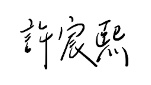 許宸熙